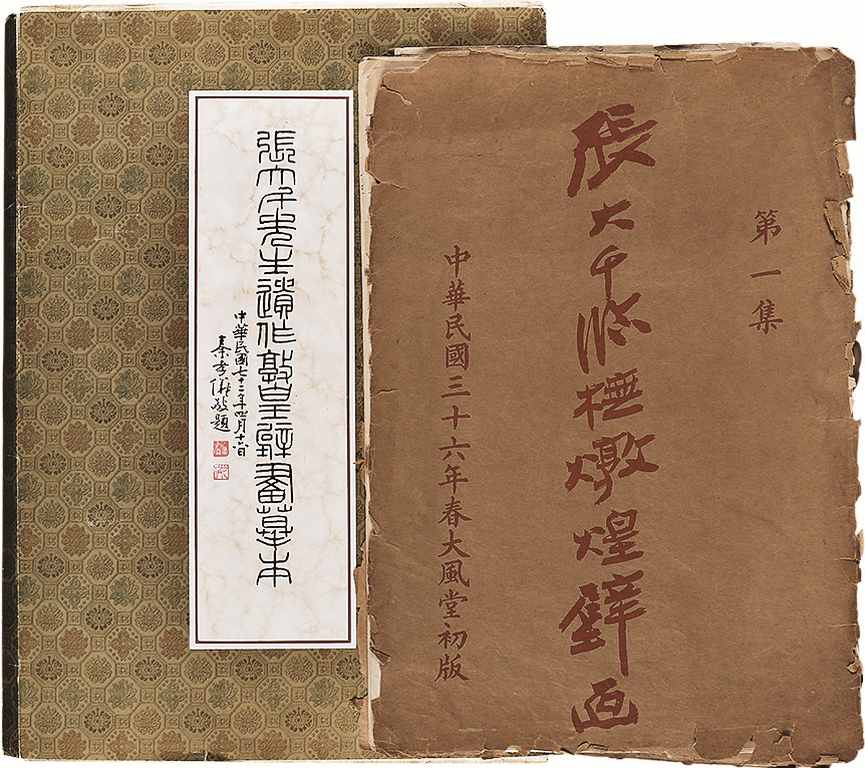 第一集
張大千臨橅燉煌壁画
中華民國三十六年春大風堂初版
張大千先生遺作敦皇壁畫摹本
中華民國七十二年四月十六日
秦孝儀敬題